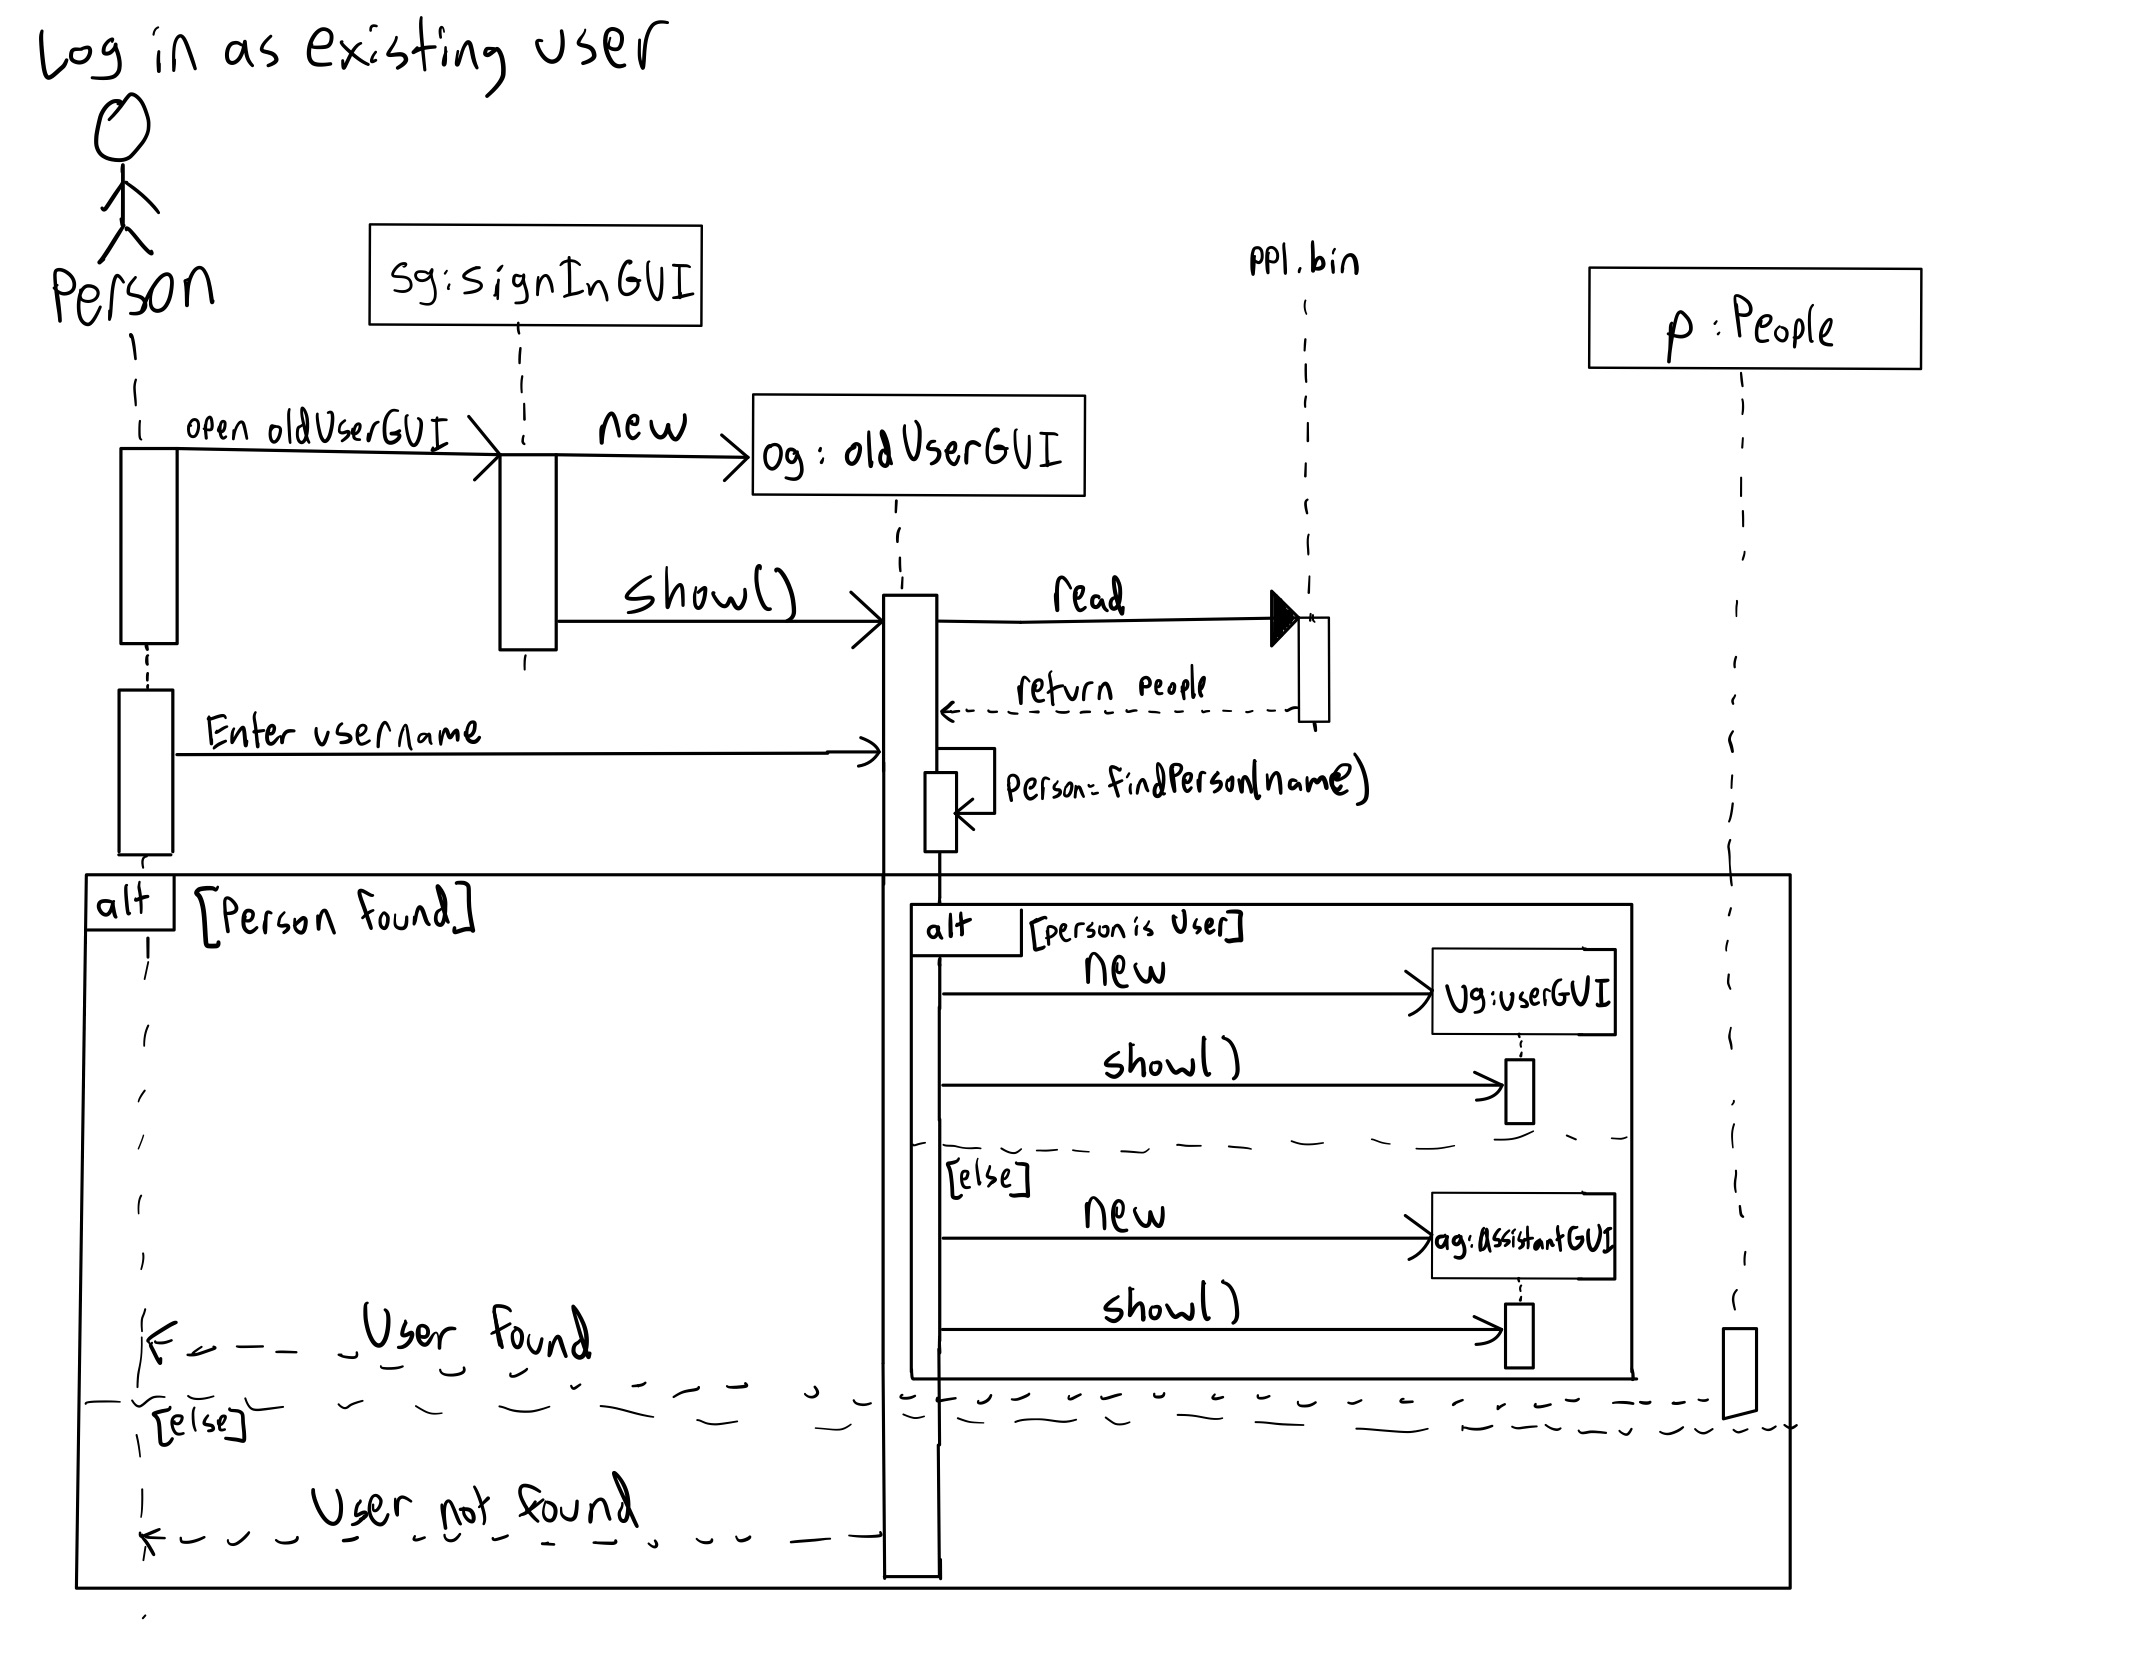 Log in as existing user
Person
sg:signInGUI
ppl.bin
p:People
open oldUserGUI
new
og:oldUserGUI
show()
read
return people
Enter username
person=findPerson(name)
alt
[Person found]
alt
[person is User]
new
Ug:userGUI
show()
[else]
new
ag:AssistantGUI
show()
User found
[else]
User not found